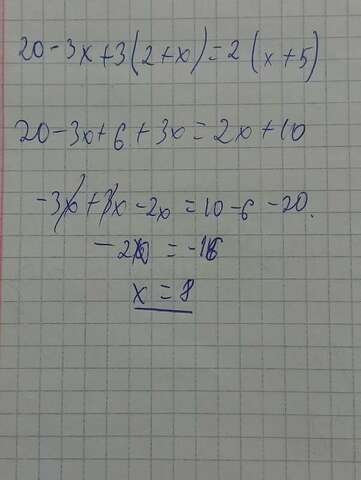 20-3x+3(2+x)=2(x+5)
20-3x+6+3x=2x+10
-3x+3x-2x=10-6-20.
-2x=-16
x=8